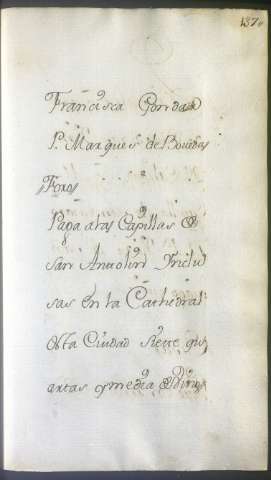 137
Francisca Gonda
S. Marques de Bouidas
Foros
Paga alas Capillas de
san Antolin Ynclu
sas en la Cathedral
desta Ciudad siette qu
artas y media de